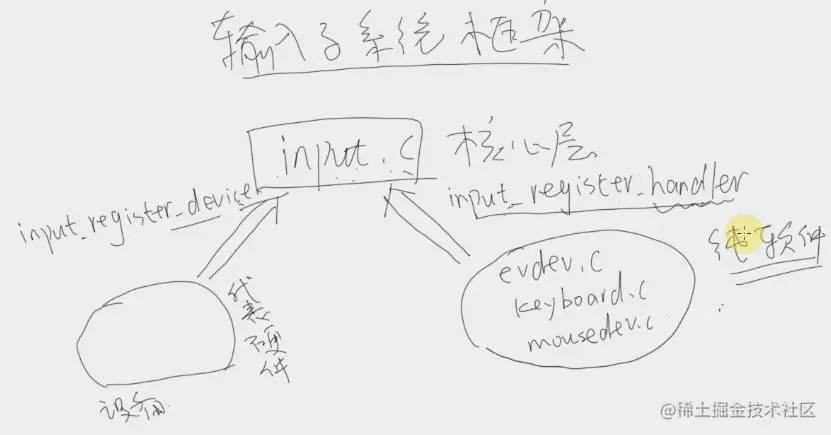 输入子系统框架
input.c 核心层
input_register_device
input_register_handler
纯软件
evdev.c
keyboard.c
mousedev.c
代表硬件
设备
@稀土掘金技术社区